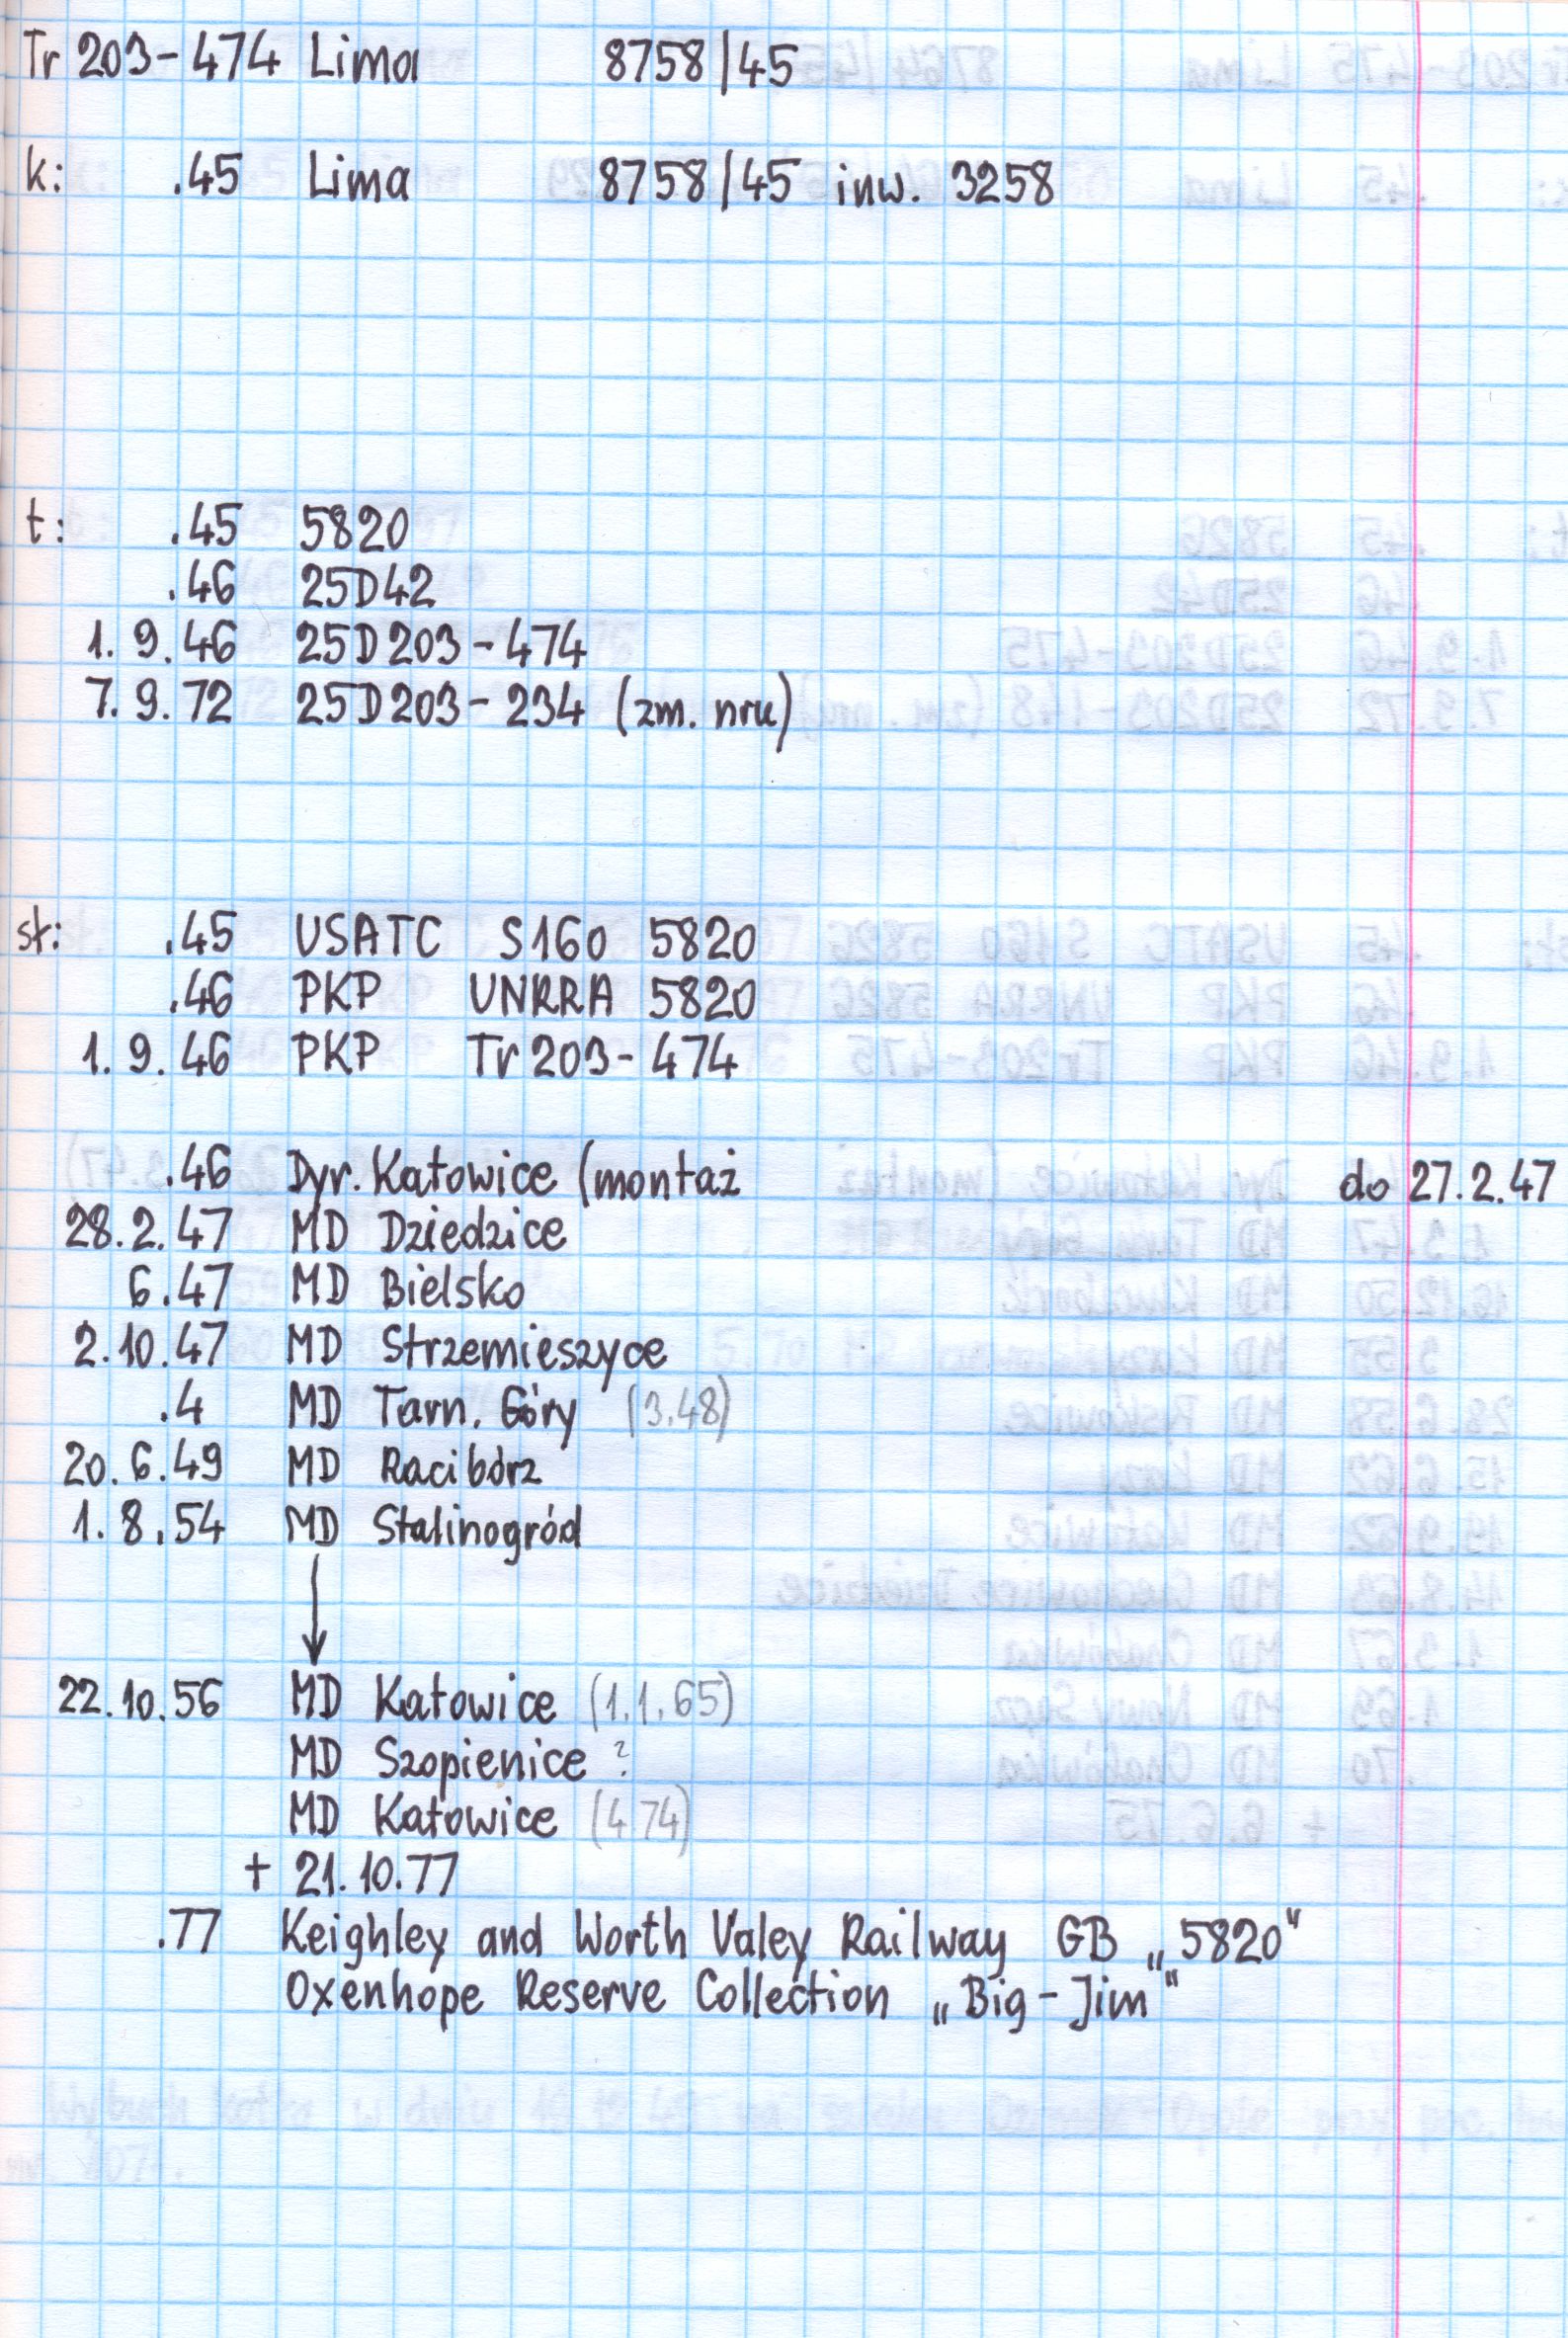 Tr 203-474 Lima 8758/45
k: .45 Lima 8758/45 inw. 3258
t: .45 5820
.46 25D42
1.9.46 25D203-474
7.9.72 25D203-234 (zm. nru)
st: .45 USATC S160 5820
.46 PKP UNRRA 5820
1.9.46 PKP Tr 203-474
.46 Dyr. Katowice (montaż do 27.2.47
28.2.47 MD Dziedzice
6.47 MD Bielsko
2.10.47 MD Strzemieszyce
.4 MD Tarn. Góry (3.48)
20.6.49 MD Racibórz
1.8.54 MD Stalinogród
22.10.56 MD Katowice (1.1.65)
MD Szopienice ?
MD Katowice (4 74)
+ 21.10.77
.77 Keighley and Worth Valey Railway GB „5820"
Oxenhope Reserve Collection „Big-Jim"